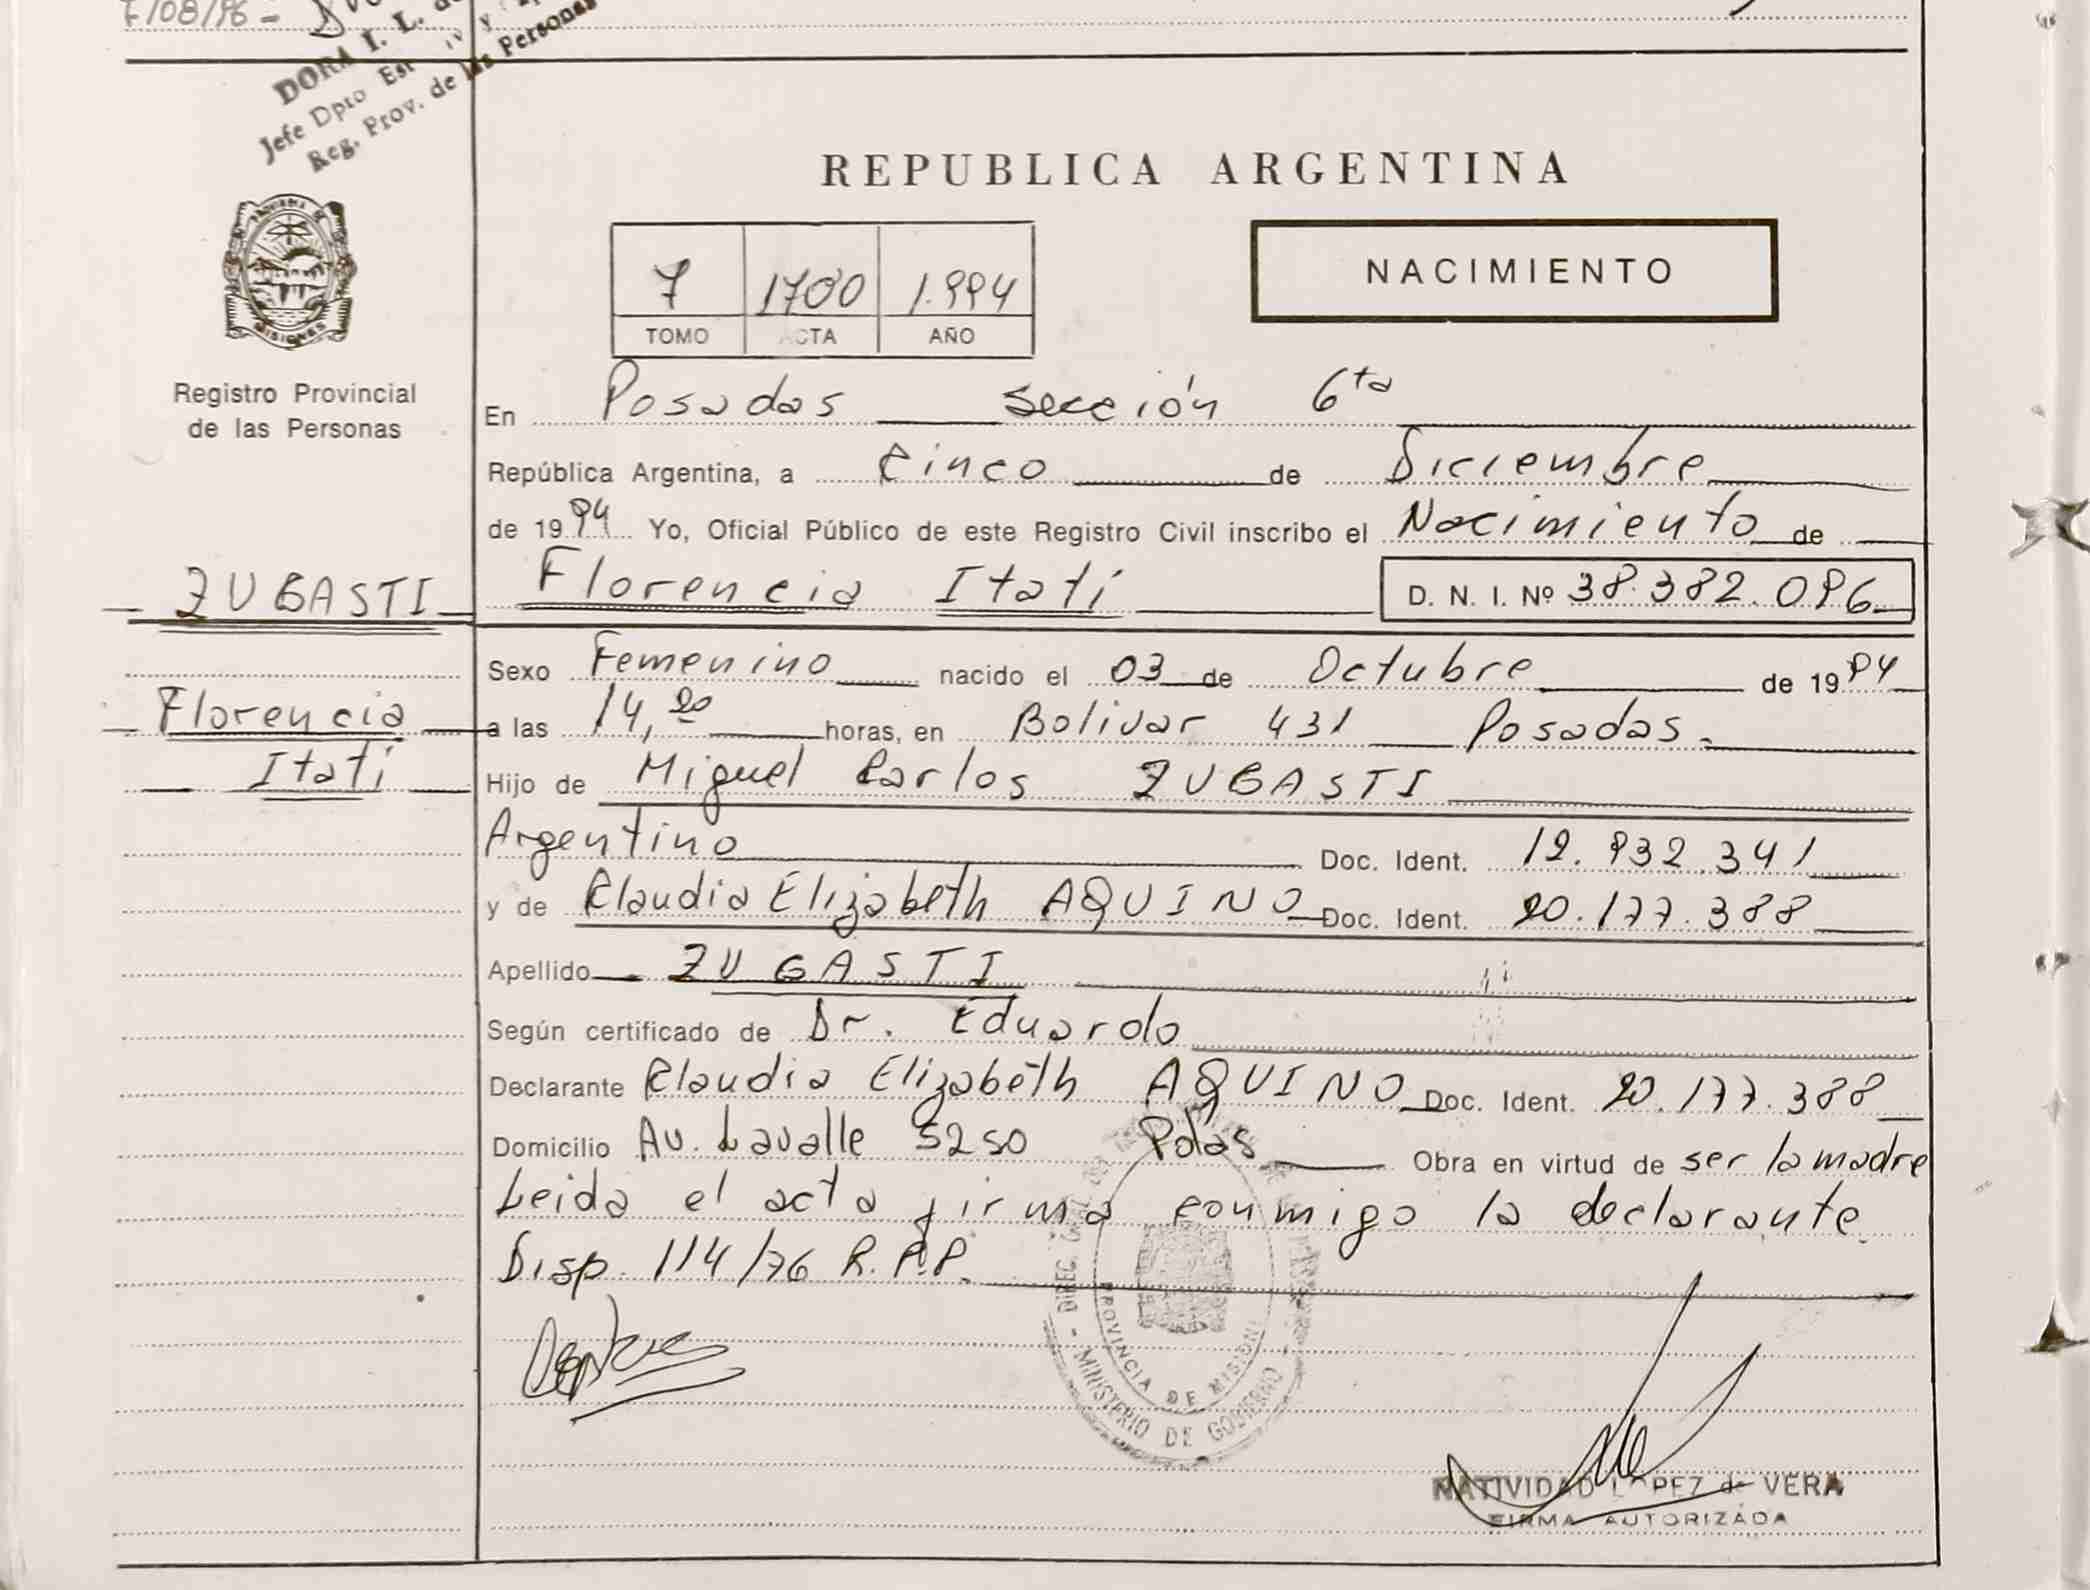 7/08/96 -
DORA I. L. de
Jefe Dpto Est y
Reg. Prov. de las Personas
PROVINCIA DE
MISIONES
Registro Provincial
de las Personas
ZUGASTI
Florencia
Itatí
REPUBLICA ARGENTINA
7 1700 1.994
TOMO ACTA AÑO
NACIMIENTO
En Posadas sección 6ta
República Argentina, a Cinco de Diciembre
de 1994 Yo, Oficial Público de este Registro Civil inscribo el Nacimiento de
Florencia Itatí D. N. I. Nº 38.382.096
Sexo Femenino nacido el 03 de Octubre de 1994
a las 14,20 horas, en Bolivar 431 Posadas.
Hijo de Miguel Carlos ZUGASTI
Argentino Doc. Ident. 12.932.341
y de Claudia Elizabeth AQUINO Doc. Ident. 20.177.388
Apellido ZUGASTI
Según certificado de Dr. Eduardo
Declarante Claudia Elizabeth AQUINO Doc. Ident. 20.177.388
Domicilio Av. Lavalle 5250 Pdas Obra en virtud de ser la madre
Leida el acta firma conmigo la declarante
Disp. 114/76 R.P.P.
PROVINCIA DE MISIONES
MINISTERIO DE GOBIERNO
NATIVIDAD LOPEZ de VERA
FIRMA AUTORIZADA